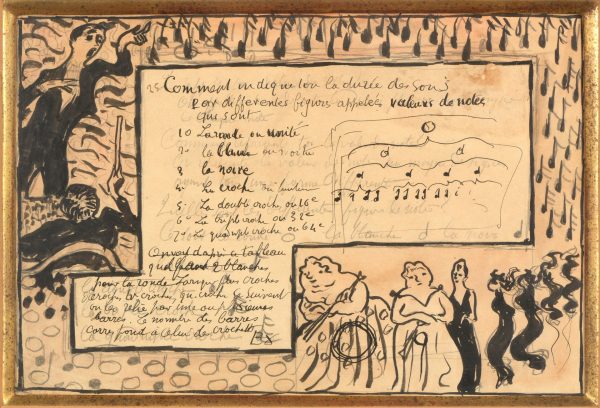 25 Comment indique ton la durée des sons
par differentes figures appelées valeurs de notes
qui sont
1o La ronde ou unité
2o la blanche ou
3 la noire
4o la croche ou huitieme
5o la double croche ou 16e
6o la triple croche ou 32e
7o la quadruple croche ou 64e
On voit d'après ce tableau
qu'il faut 2 blanches
pour la ronde Lorsque des croches
croches, qui se suivent
on les relie par une ou plusieurs
barres. Le nombre de barres
correspond a celui de crochets
Ex